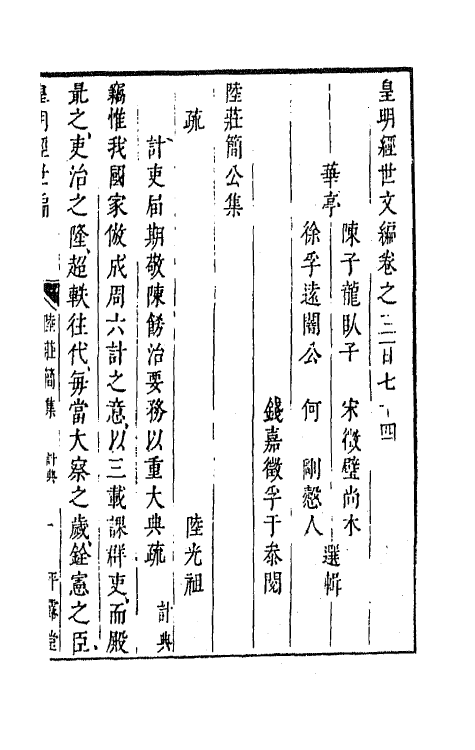 皇明經世文編卷之三百七十四
華亭
陳子龍臥子 宋徵璧尚木
徐孚遠闇公 何 剛慤人
選輯
錢嘉徵孚于叅閱
陸莊簡公集
疏 陸光祖
計吏屆期敬陳飭治要務以重大典疏 計典
竊惟我國家倣成周六計之意以三載課群吏而殿
最之吏治之隆超軼往代每當大察之歲銓憲之臣
皇明經世編 陸莊簡集 計典 一 平露堂